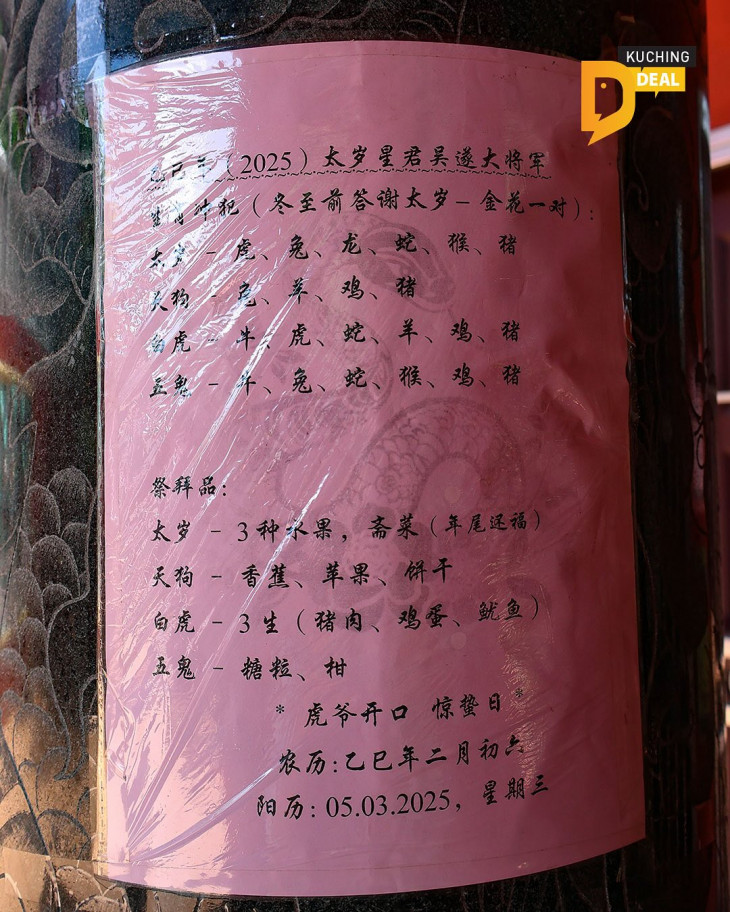 KUCHING
DEAL
乙巳年（2025）太岁星君吴遂大将军
生肖冲犯（冬至前答谢太岁－金花一对）：
太岁 － 虎、兔、龙、蛇、猴、猪
天狗 － 兔、羊、鸡、猪
白虎 － 牛、虎、蛇、羊、鸡、猪
五鬼 － 牛、兔、蛇、猴、鸡、猪
祭拜品：
太岁 － 3种水果，斋菜（年尾还福）
天狗 － 香蕉、苹果、饼干
白虎 － 3生（猪肉、鸡蛋、鱿鱼）
五鬼 － 糖粒、柑
* 虎爷开口 惊蛰日 *
农历：乙巳年二月初六
阳历：05.03.2025，星期三